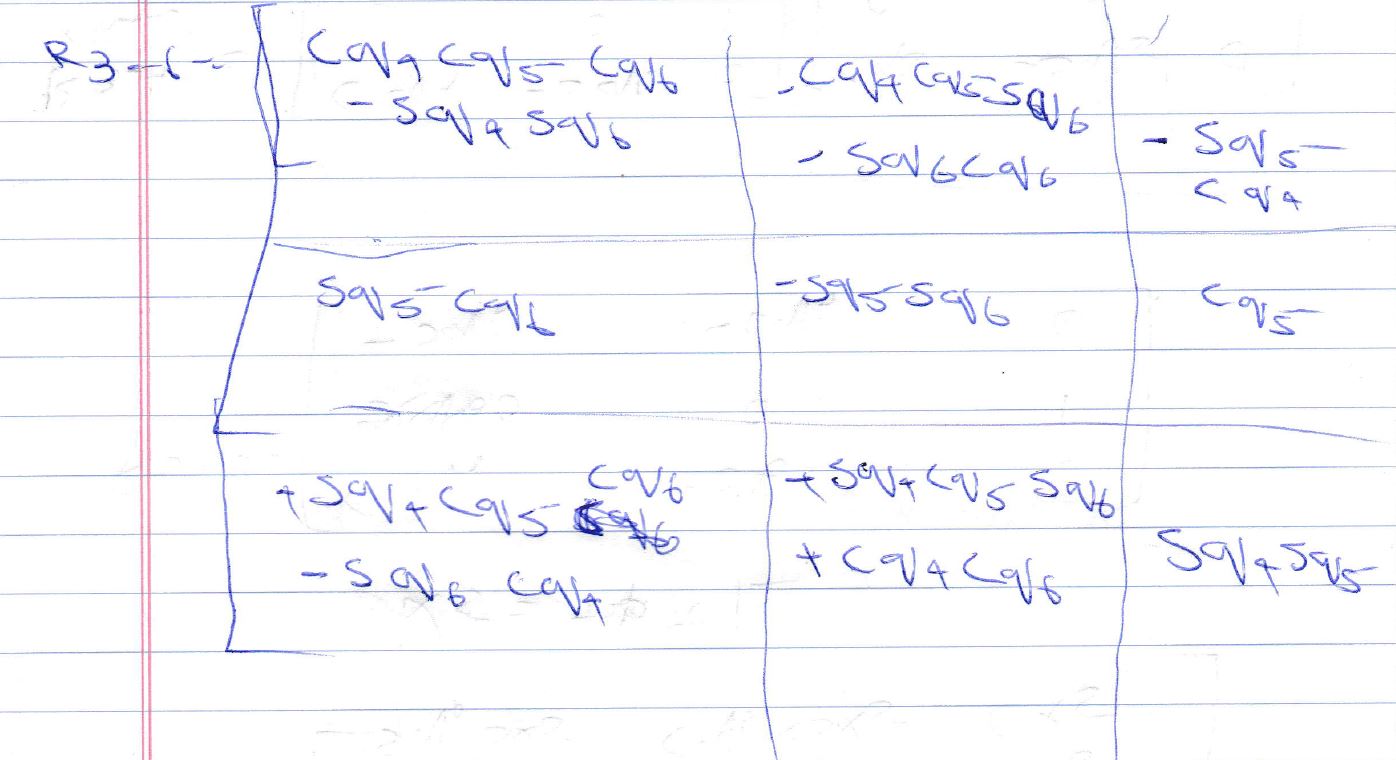 R3-6=
Cq4 Cq5 Cq6 - Sq4 Sq6
-Cq4 Cq5 Sq6 - Sq6 Cq6
-Sq5 Cq4
Sq5 Cq6
-Sq5 Sq6
Cq5
+Sq4 Cq5 Cq6 - Sq6 Cq4
+Sq4 Cq5 Sq6 + Cq4 Cq6
Sq4 Sq5